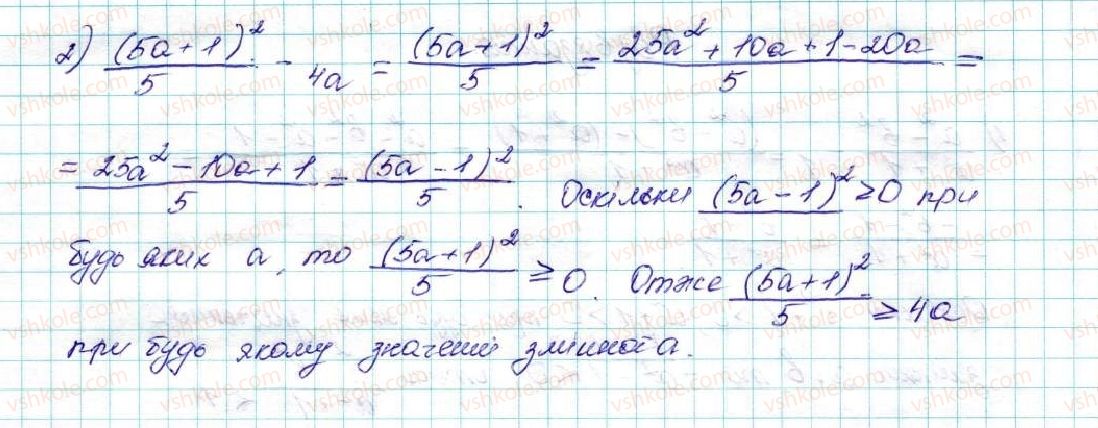 2) (5a+1)²/5 - 4a = (5a+1)²/5 = 25a² + 10a + 1 - 20a/5 =
= 25a² - 10a + 1/5 = (5a - 1)²/5. Оскільки (5a - 1)² ≥ 0 при
будь яких a, то (5a+1)²/5 ≥ 0. Отже (5a+1)²/5 ≥ 4a
при будь якому значенні змінної a.